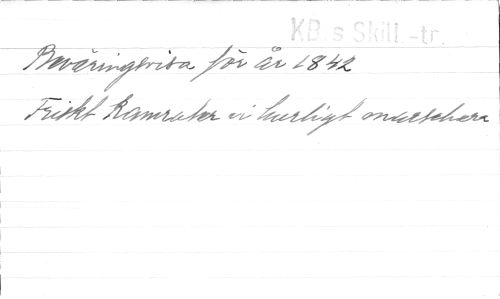 KB.s Skill.-tr.
Beväringsvisa för år 1842
Friskt kamrater vi hurtigt marschera